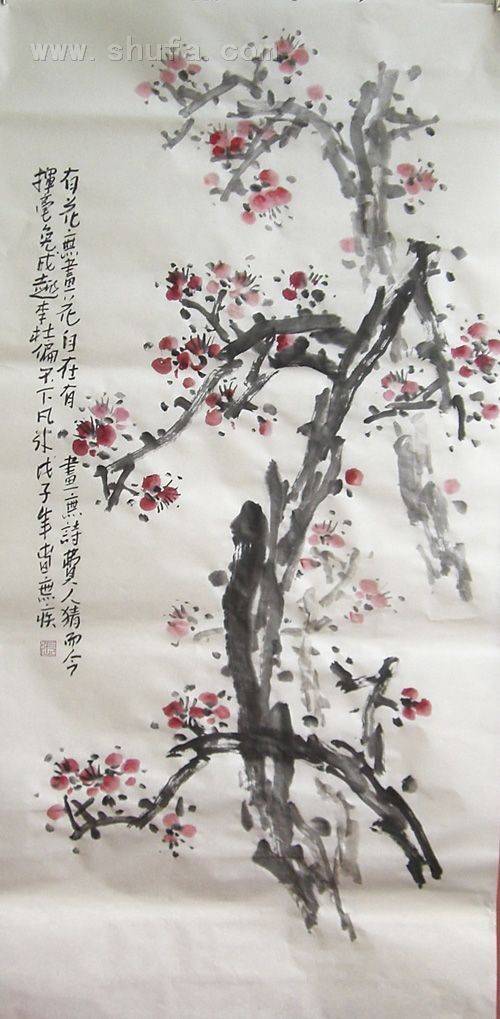 www.shufa.com
有花無畫花自在有畫無詩費人猜而今
揮毫竟成趣李杜偏不下凡來戊子年無疾